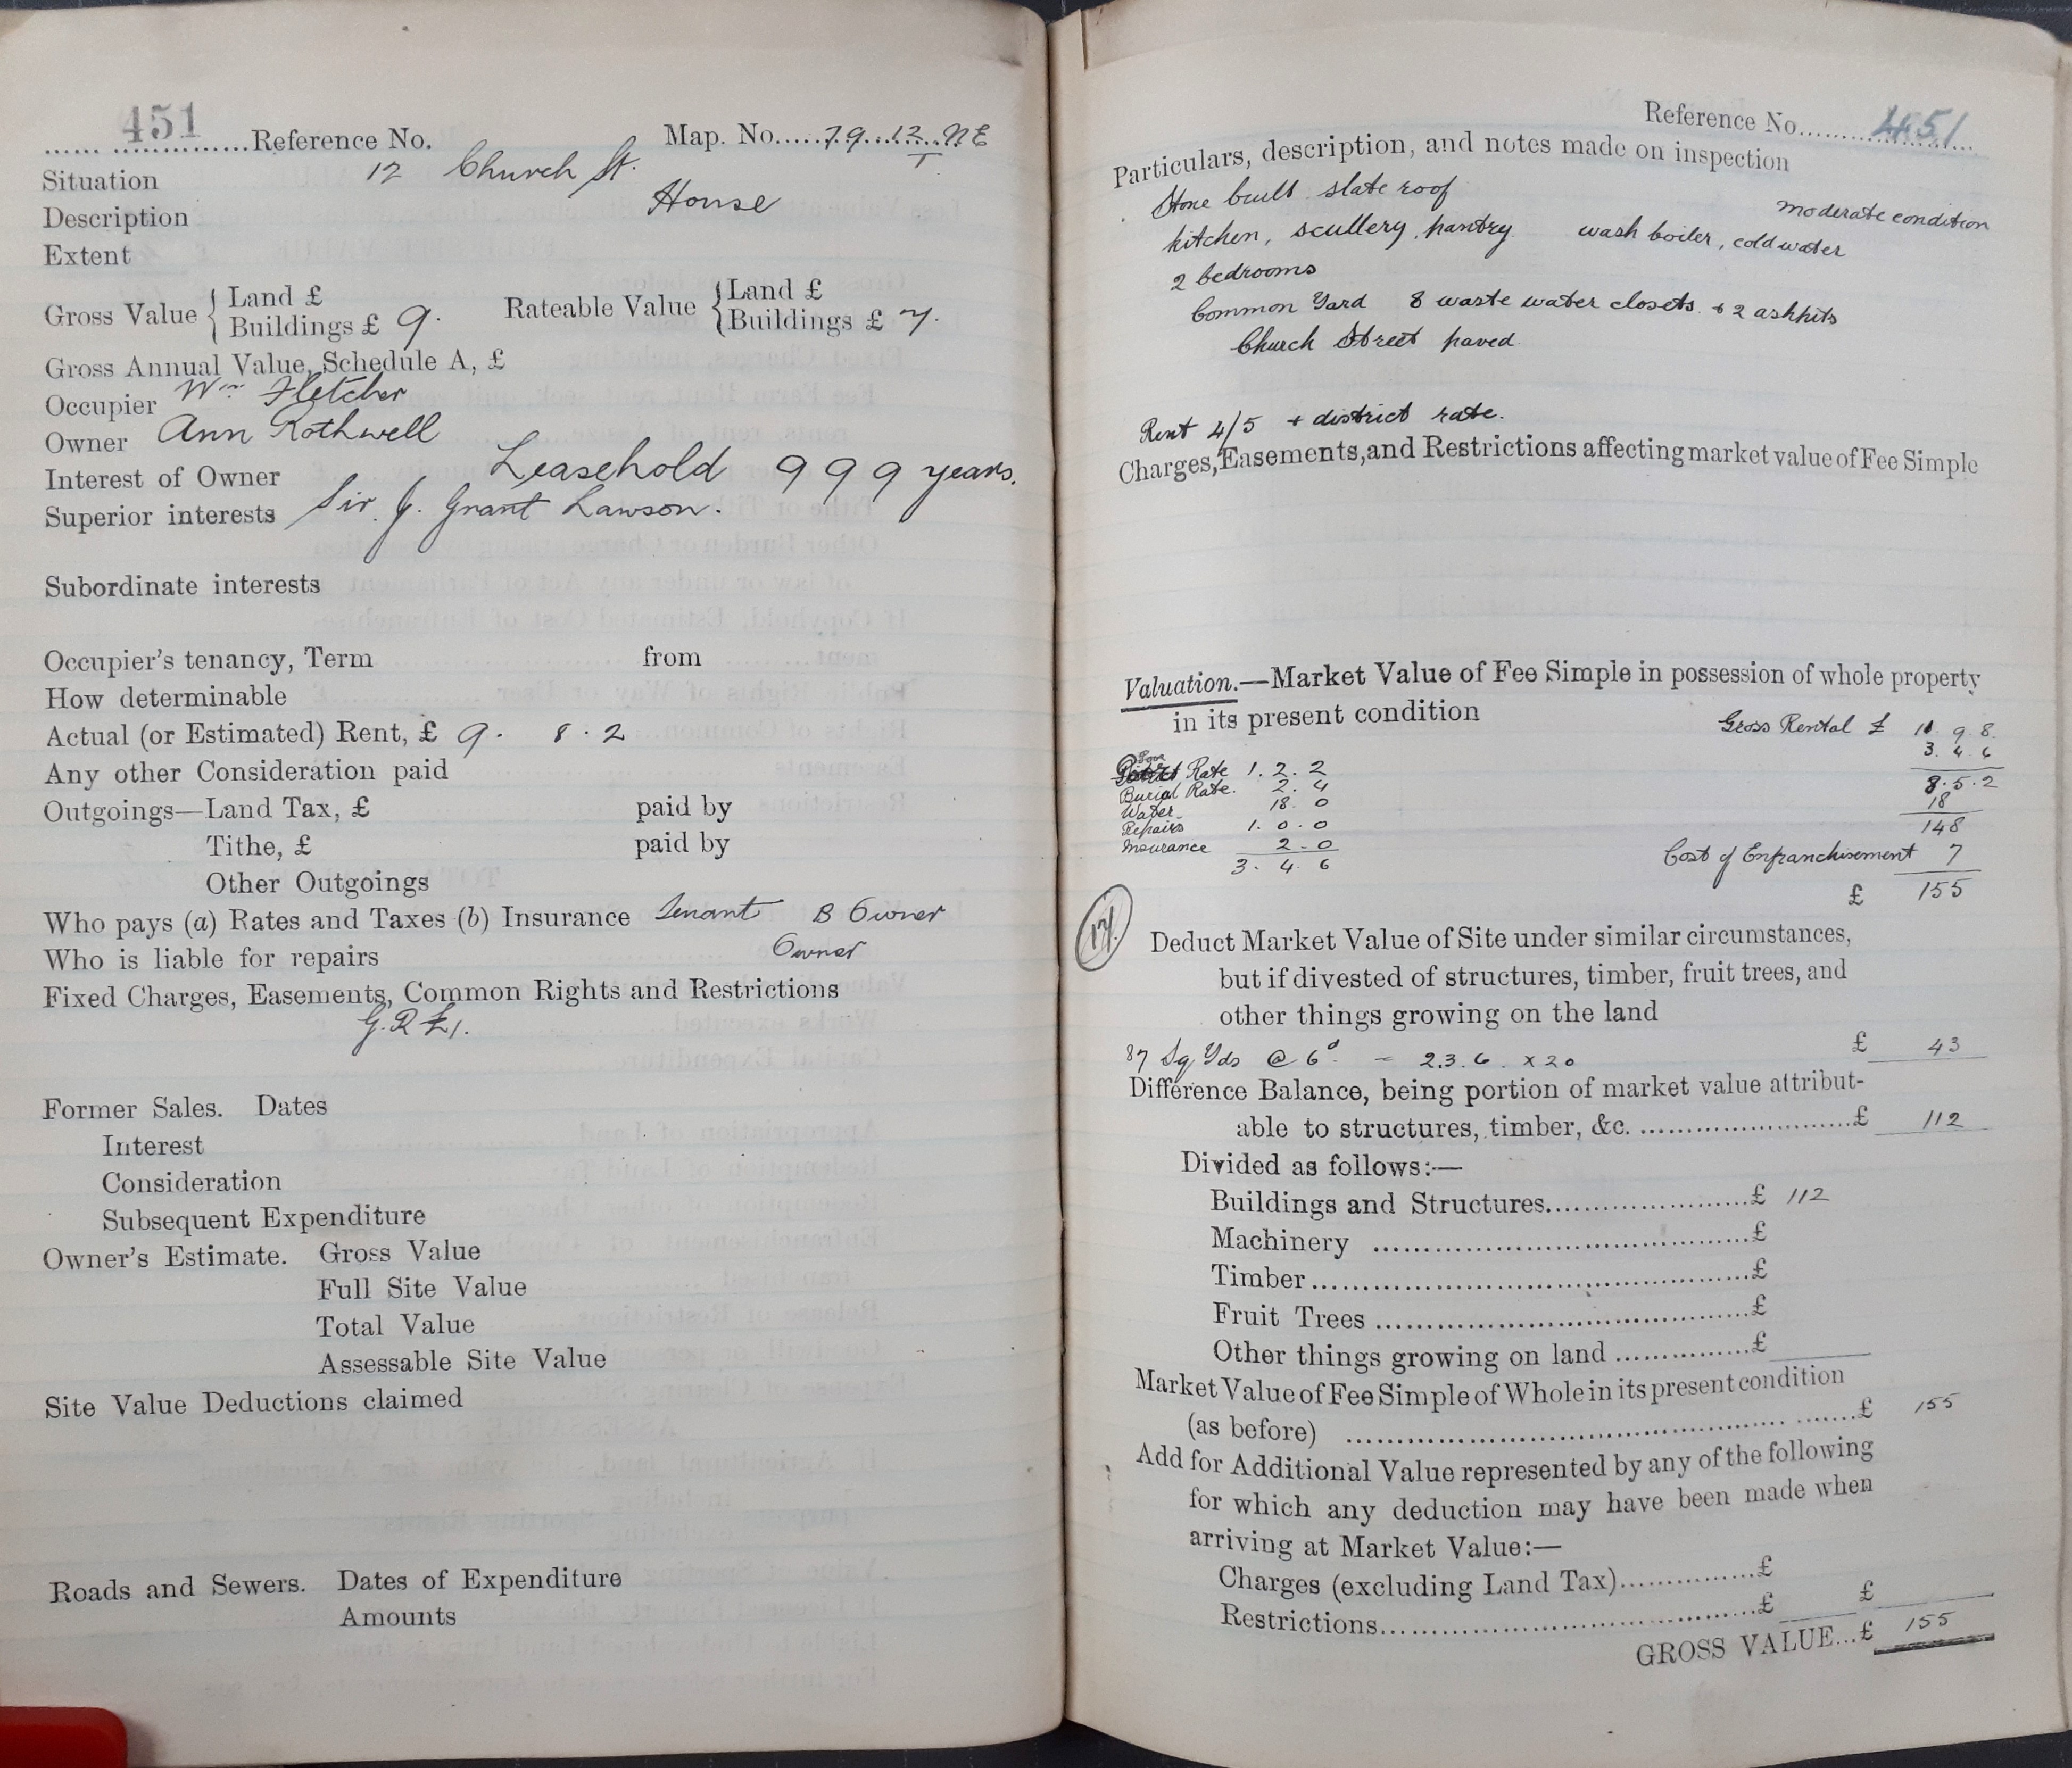 451 Reference No. Map. No. 79.12.NE
I
Situation 12 Church St.
Description House
Extent
Gross Value { Land £ Rateable Value { Land £
Buildings £ 9. Buildings £ 7.
Gross Annual Value, Schedule A, £
Occupier Wm Fletcher
Owner Ann Rothwell
Interest of Owner Leasehold 999 years.
Superior interests Sir J. Grant Lawson.
Subordinate interests
Occupier's tenancy, Term from
How determinable
Actual (or Estimated) Rent, £ 9. 8. 2
Any other Consideration paid
Outgoings—Land Tax, £ paid by
Tithe, £ paid by
Other Outgoings
Who pays (a) Rates and Taxes (b) Insurance Tenant B Owner
Who is liable for repairs Owner
Fixed Charges, Easements, Common Rights and Restrictions
G.R £1.
Former Sales. Dates
Interest
Consideration
Subsequent Expenditure
Owner's Estimate. Gross Value
Full Site Value
Total Value
Assessable Site Value
Site Value Deductions claimed
Roads and Sewers. Dates of Expenditure
Amounts
Reference No. 451
Particulars, description, and notes made on inspection
Stone built slate roof moderate condition
kitchen, scullery, pantry wash boiler, cold water
2 bedrooms
Common Yard 8 waste water closets + 2 ashpits
Church Street paved.
Rent 4/5 + district rate.
Charges, Easements, and Restrictions affecting market value of Fee Simple
Valuation.—Market Value of Fee Simple in possession of whole property
in its present condition Gross Rental £ 11. 9. 8.
3. 4. 6
Poor Rate 1. 2. 2 8. 5. 2
Burial Rate. 2. 4 18
Water 18. 0 148
Repairs 1. 0. 0
Insurance 2. 0 Cost of Enfranchisement 7
3. 4. 6
£ 155
17.
Deduct Market Value of Site under similar circumstances,
but if divested of structures, timber, fruit trees, and
other things growing on the land
87 Sq Yds @ 6d. = 2.3.6 x 20 £ 43
Difference Balance, being portion of market value attribut-
able to structures, timber, &c. £ 112
Divided as follows:—
Buildings and Structures £ 112
Machinery £
Timber £
Fruit Trees £
Other things growing on land £
Market Value of Fee Simple of Whole in its present condition
(as before) £ 155
Add for Additional Value represented by any of the following
for which any deduction may have been made when
arriving at Market Value:—
Charges (excluding Land Tax) £
Restrictions £ £
GROSS VALUE... £ 155